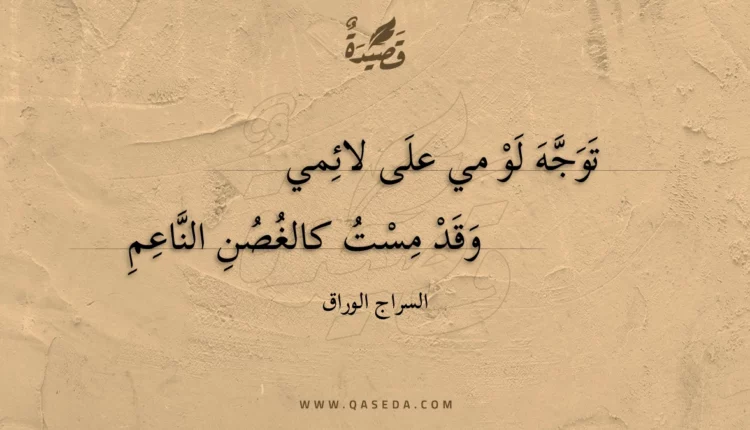 قَصِيدَةٌ
تَوَجَّهَ لَوْ مي علَى لائِمي
وَقَدْ مِسْتُ كالغُصُنِ النَّاعِمِ
السراج الوراق
WWW.QASEDA.COM